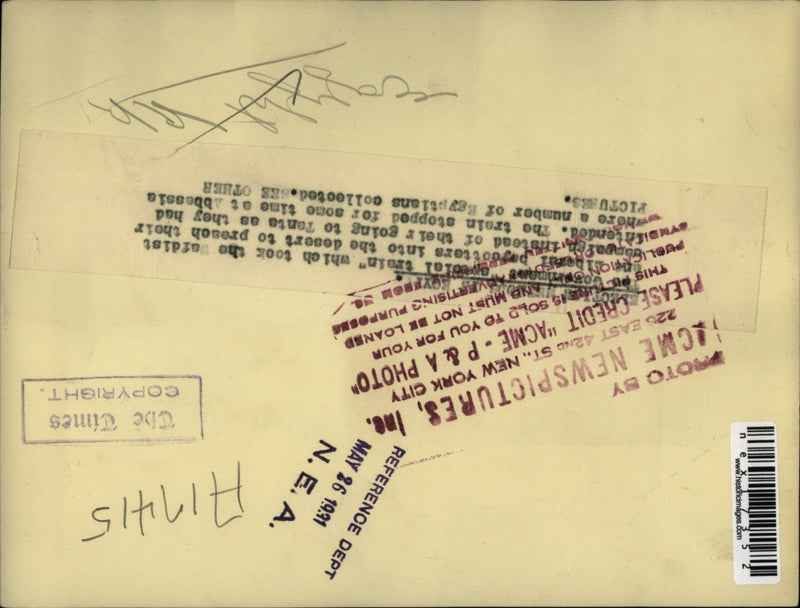 Government "special train" which took the Wafdist
Liberal into the desert to preach their
campaign instead of their going to Tanta as they had
intended. The train stopped for some time at Abbassia
where a number of Egyptians collected. SEE OTHER
PICTURES.
PHOTO BY
ACME NEWSPICTURES, Inc.
220 EAST 42ND ST., NEW YORK CITY
PLEASE CREDIT "ACME - P & A PHOTO"
THIS PICTURE IS SOLD TO YOU FOR YOUR
PUBLICATION ONLY AND MUST NOT BE LOANED
SYNDICATED ADVERTISING PURPOSES
The Times
COPYRIGHT.
REFERENCE DEPT
MAY 26 1931
N. E. A.
A17415
www.historicimages.com
nex17352